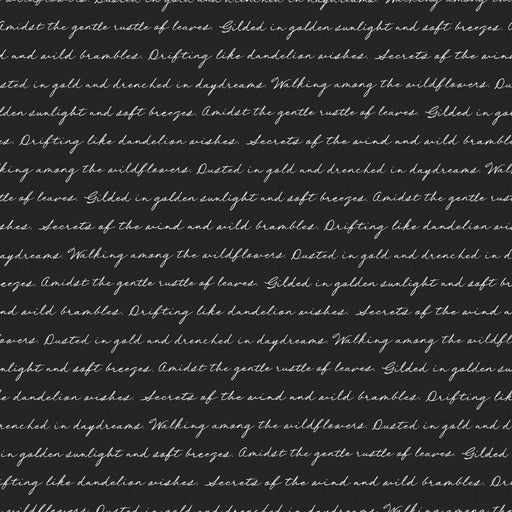 Dusted in gold and drenched in daydreams. Walking among the
Amidst the gentle rustle of leaves. Gilded in golden sunlight and soft breezes.
d and wild brambles. Drifting like dandelion wishes. Secrets of the wind
sted in gold and drenched in daydreams. Walking among the wildflowers. Du
lden sunlight and soft breezes. Amidst the gentle rustle of leaves. Gilded in go
es. Drifting like dandelion wishes. Secrets of the wind and wild brambl
king among the wildflowers. Dusted in gold and drenched in daydreams. Wal
tle of leaves. Gilded in golden sunlight and soft breezes. Amidst the gentle rust
shes. Secrets of the wind and wild brambles. Drifting like dandelion wi
aydreams. Walking among the wildflowers. Dusted in gold and drenched in d
eezes. Amidst the gentle rustle of leaves. Gilded in golden sunlight and soft br
nd and wild brambles. Drifting like dandelion wishes. Secrets of the wind a
owers. Dusted in gold and drenched in daydreams. Walking among the wildfl
nlight and soft breezes. Amidst the gentle rustle of leaves. Gilded in golden su
e dandelion wishes. Secrets of the wind and wild brambles. Drifting lik
renched in daydreams. Walking among the wildflowers. Dusted in gold and d
in golden sunlight and soft breezes. Amidst the gentle rustle of leaves. Gilded
ifting like dandelion wishes. Secrets of the wind and wild brambles. Dr
wildflowers. Dusted in gold and drenched in daydreams. Walking among the